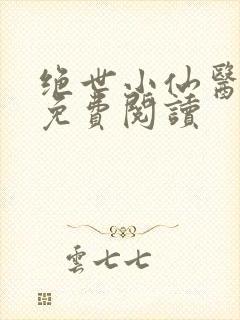 绝世小仙醫
免費閱讀
雲七七